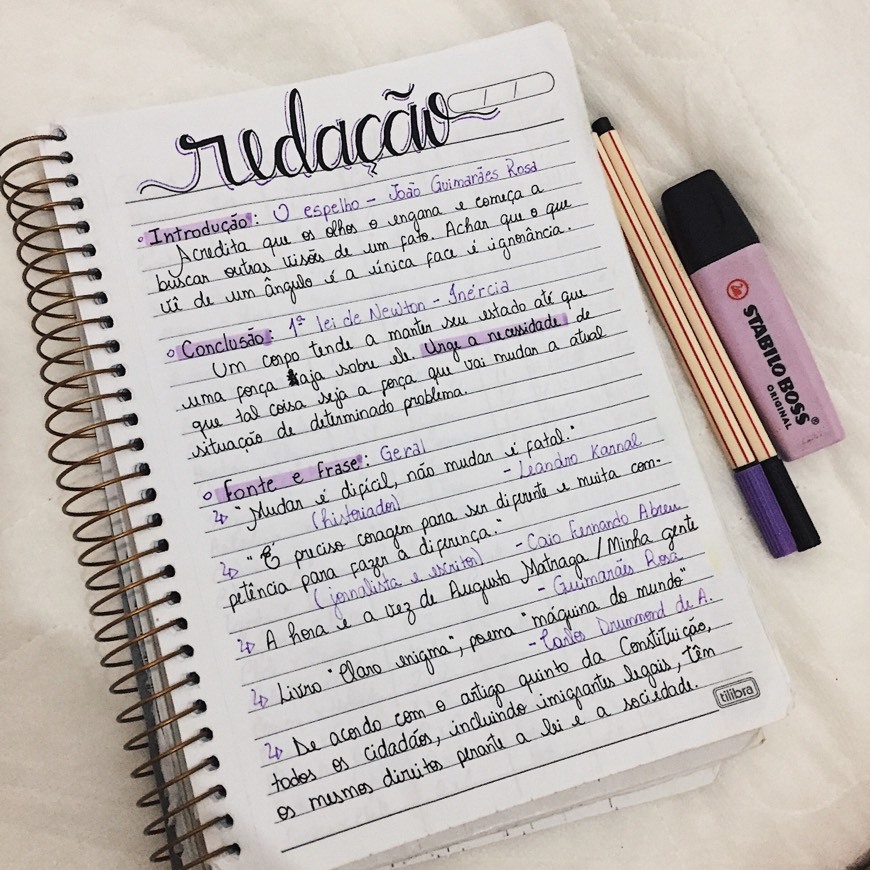 redação
Introdução: O espelho - João Guimarães Rosa
Acredita que os olhos o engana e começa a
buscar outras visões de um fato. Achar que o que
vê de um ângulo é a única face é ignorância.
Conclusão: 1ª lei de Newton - Inércia
Um corpo tende a manter seu estado até que
uma força aja sobre ele. Urge a necessidade de
que tal coisa seja a força que vai mudar a atual
situação de determinado problema.
Fonte e frase: Geral
"Mudar é difícil, não mudar é fatal."
(historiador) - Leandro Karnal
"É preciso coragem para ser diferente e muita com-
petência para fazer a diferença."
(jornalista e escritor) - Caio Fernando Abreu
A hora e a vez de Augusto Matraga / Minha gente
- Guimarães Rosa
Livro "Claro enigma", poema "máquina do mundo"
- Carlos Drummond de A.
De acordo com o artigo quinto da Constituição,
todos os cidadãos, incluindo imigrantes legais, têm
os mesmos direitos perante a lei e a sociedade.
tilibra
STABILO BOSS
ORIGINAL